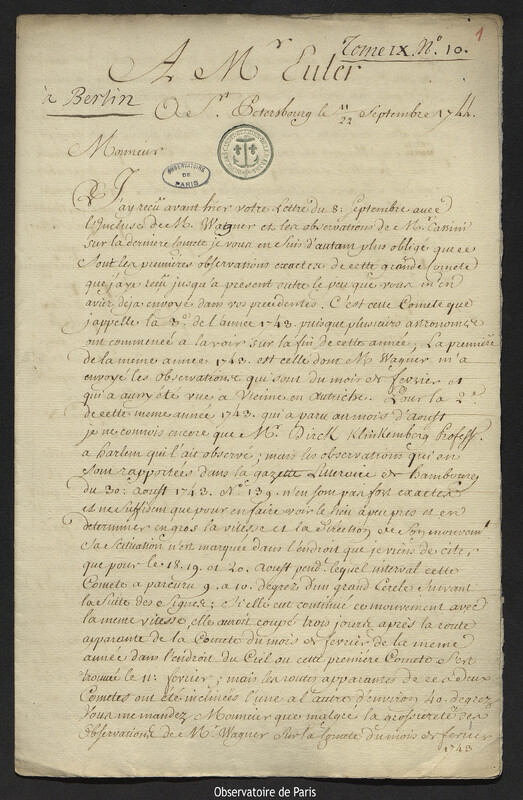 Tome IX. N.o 10.
1
A Mr Euler
à Berlin
De St Petersbourg le 11/22 Septembre 1744.
Monsieur
OBSERVATOIRE DE PARIS
J'ay reçu avant hier votre Lettre du 8. Septembre avec
l'incluse de M. Wagner et les observations de Mr Cassini
sur la derniere Comete je vous en suis d'autant plus obligé que ce
sont les premieres observations exactes de cette grande Comete
que j'aye reçu jusqu'a present outre le peu que vous m'en
aviez deja envoyé dans vos precedentes. C'est cette Comete que
j'appelle la 3e. de l'année 1743. puisque plusieurs astronomes
ont commencé a la voir sur la fin de cette année; La premiere
de la meme année 1743. est celle dont M. Wagner m'a
envoyé les observations qui sont du mois de fevrier et
qui a aussy été vue a Vienne en Autriche. Pour la 2e.
de cette meme année 1743. qui a paru au mois d'Aoust
je ne connois encore que Mr. Dirck Klinkemberg professr.
a harlem qui l'ait observé; mais les observations qui en
sont rapportées dans la gazette Litteraire de hambourg
du 30. Aoust 1743. No. 139. n'en sont pas fort exactes
et ne suffisent que pour en faire voir le lieu à peu pres et en
determiner en gros la vitesse et la direction de son mouvemt
Sa scituation n'est marquée dans l'endroit que je viens de citer
que pour le 18. 19. et 20. Aoust pendt. lequel interval cette
Comete a parcuru 9. a 10. degrez d'un grand Cercle suivant
la suite des Signes; Si elle eut continué ce mouvement avec
la meme vitesse, elle auroit coupé trois jours après la route
apparante de la Comete du mois de fevrier de la meme
année dans l'endroit du Ciel ou cette premiere Comete s'est
trouvée le 11. fevrier; mais les routes apparantes de ces deux
Cometes ont eté inclinées l'une a l'autre d'environ 40. degrez
Vous me mandez Monsieur que malgre la grossiereté des
observations de Mr. Wagner sur la Comete du mois de fevrier
1743
Observatoire de Paris